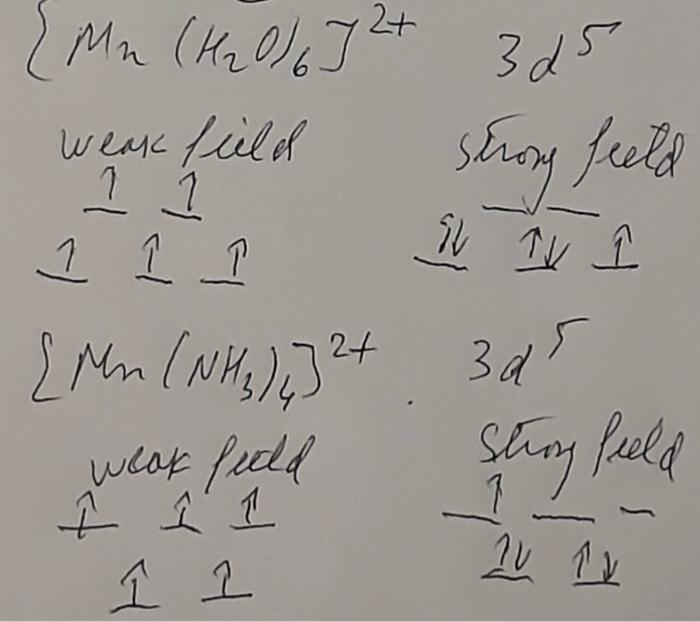 [Mn(H₂O)₆]²⁺ 3d⁵
weak field strong field
↑ ↑ _ _
↑ ↑ ↑ ↑↓ ↑↓ ↑
[Mn(NH₃)₄]²⁺ 3d⁵
weak field strong field
↑ ↑ ↑ ↑ _ _
↑ ↑ ↑↓ ↑↓